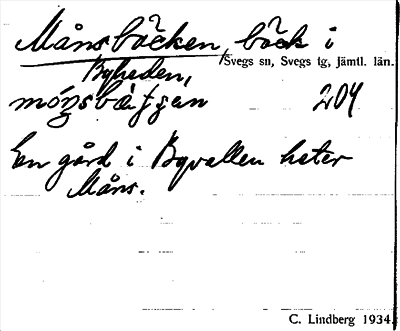 Månsbäcken, bäck i
Byheden, Svegs sn, Svegs tg, jämtl. län.
204
En gård i Byvallen heter
Måns.
C. Lindberg 1934.